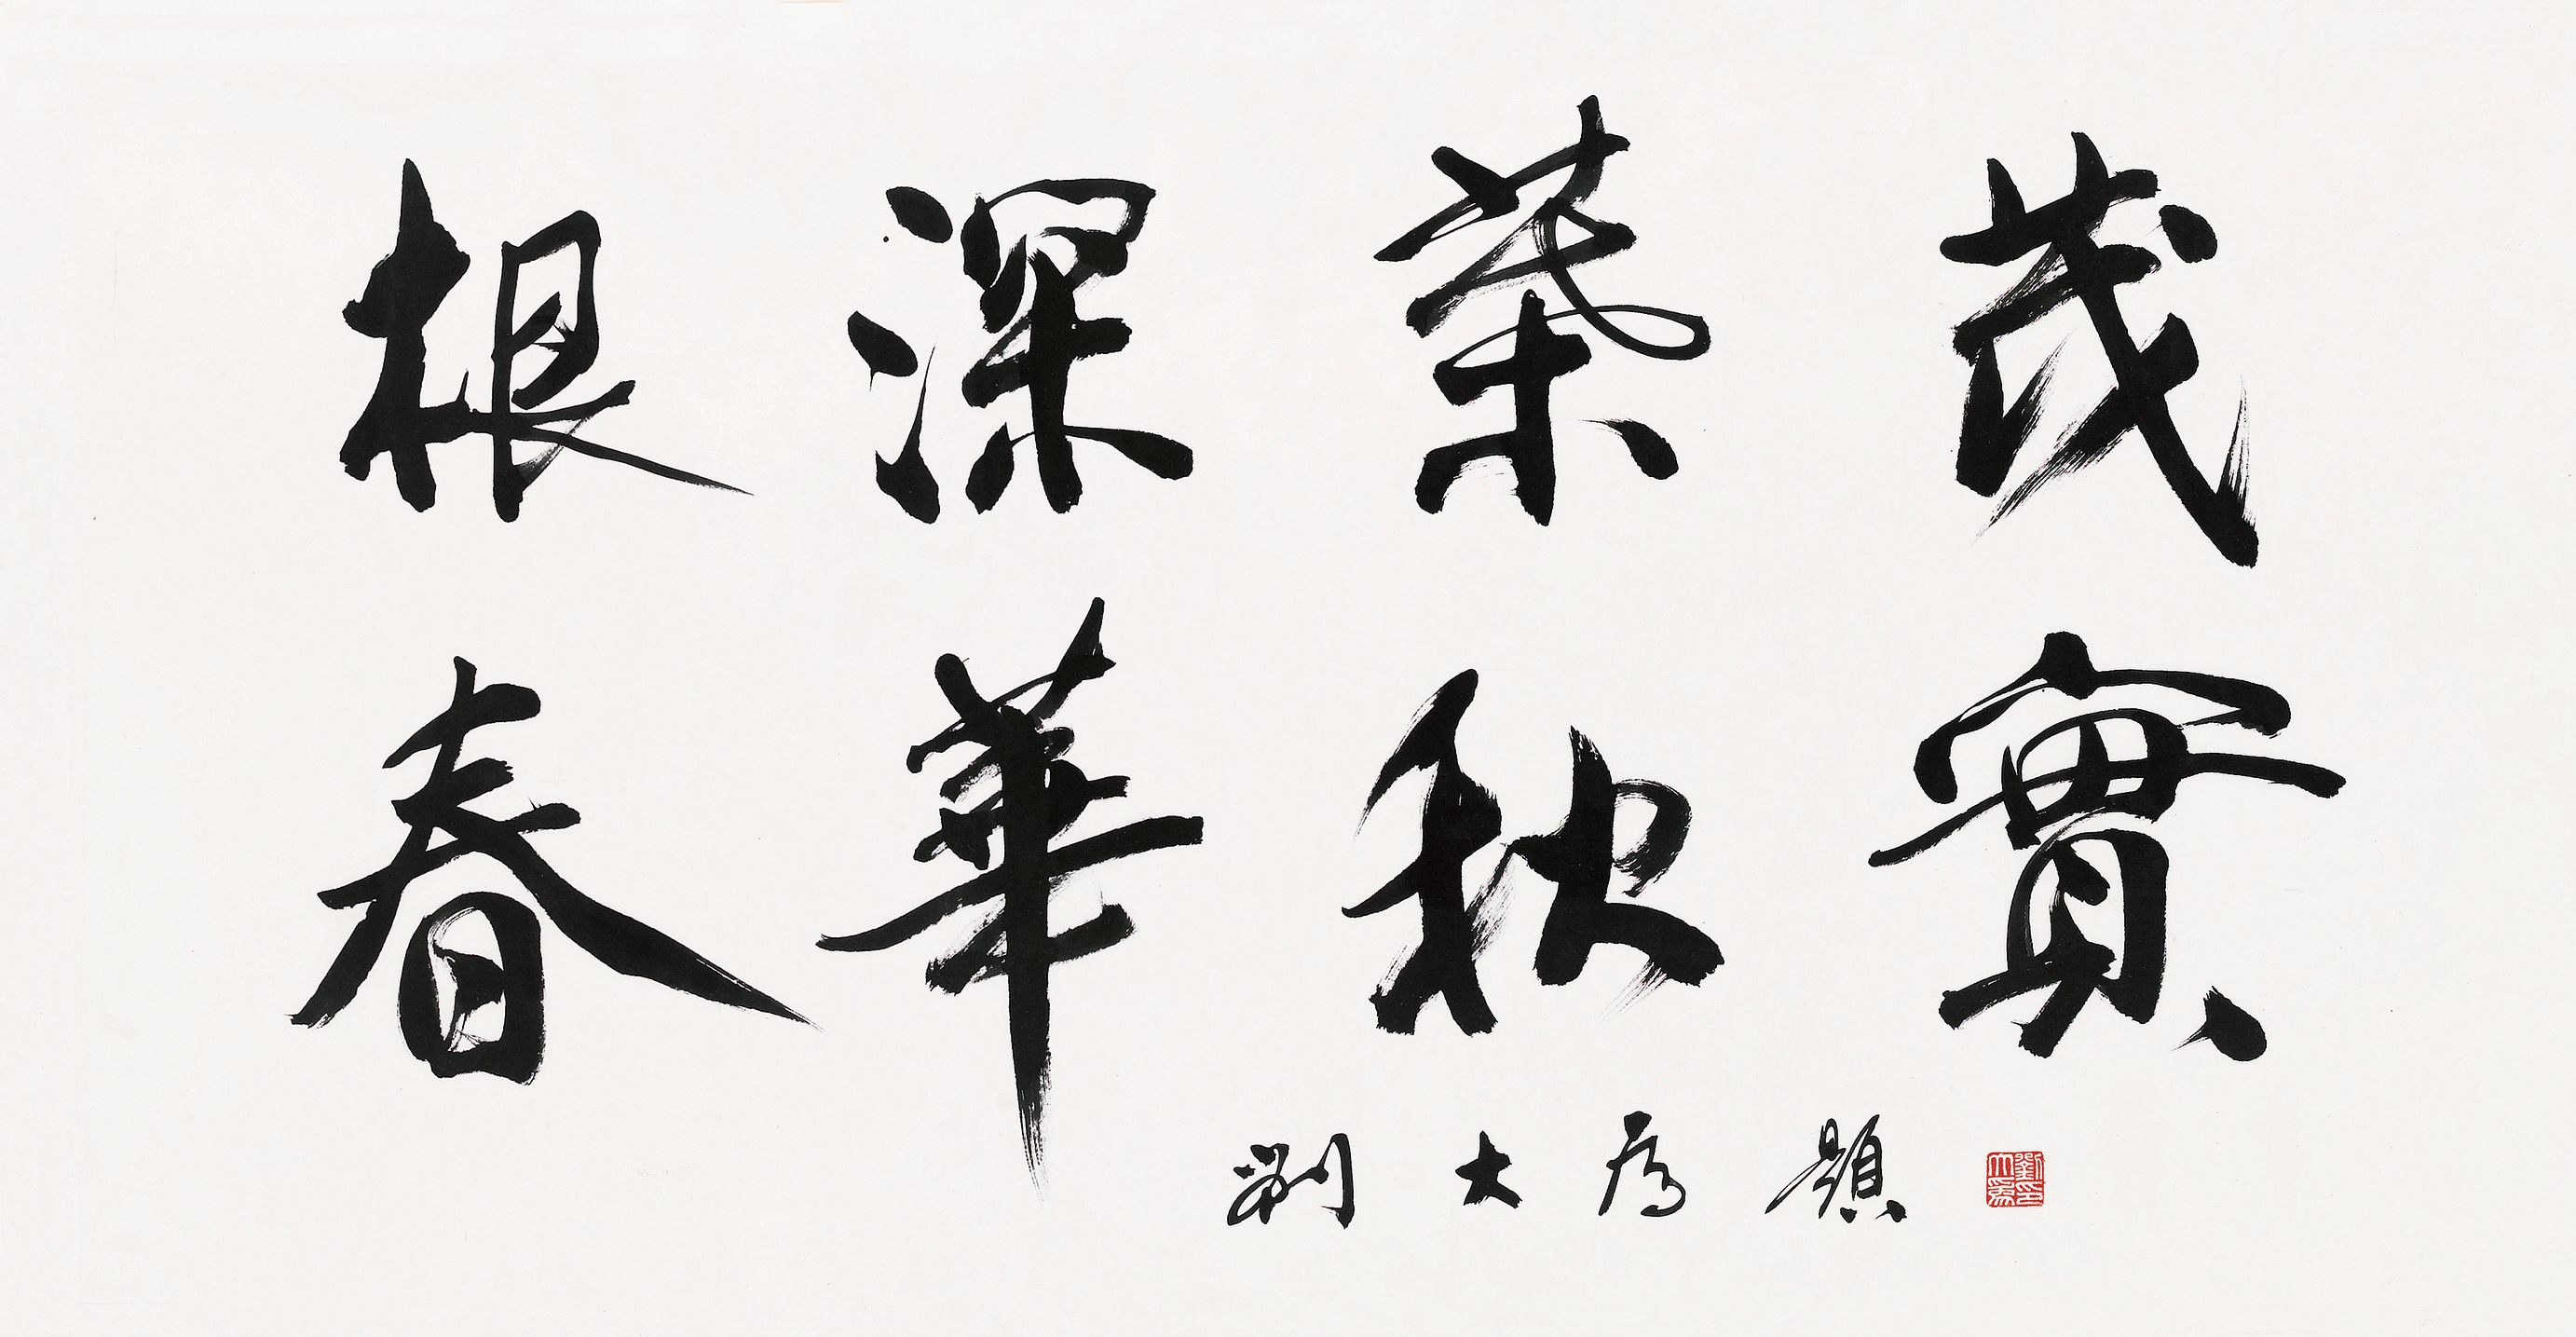 根深葉茂
春華秋實
劉大為題
劉大為印